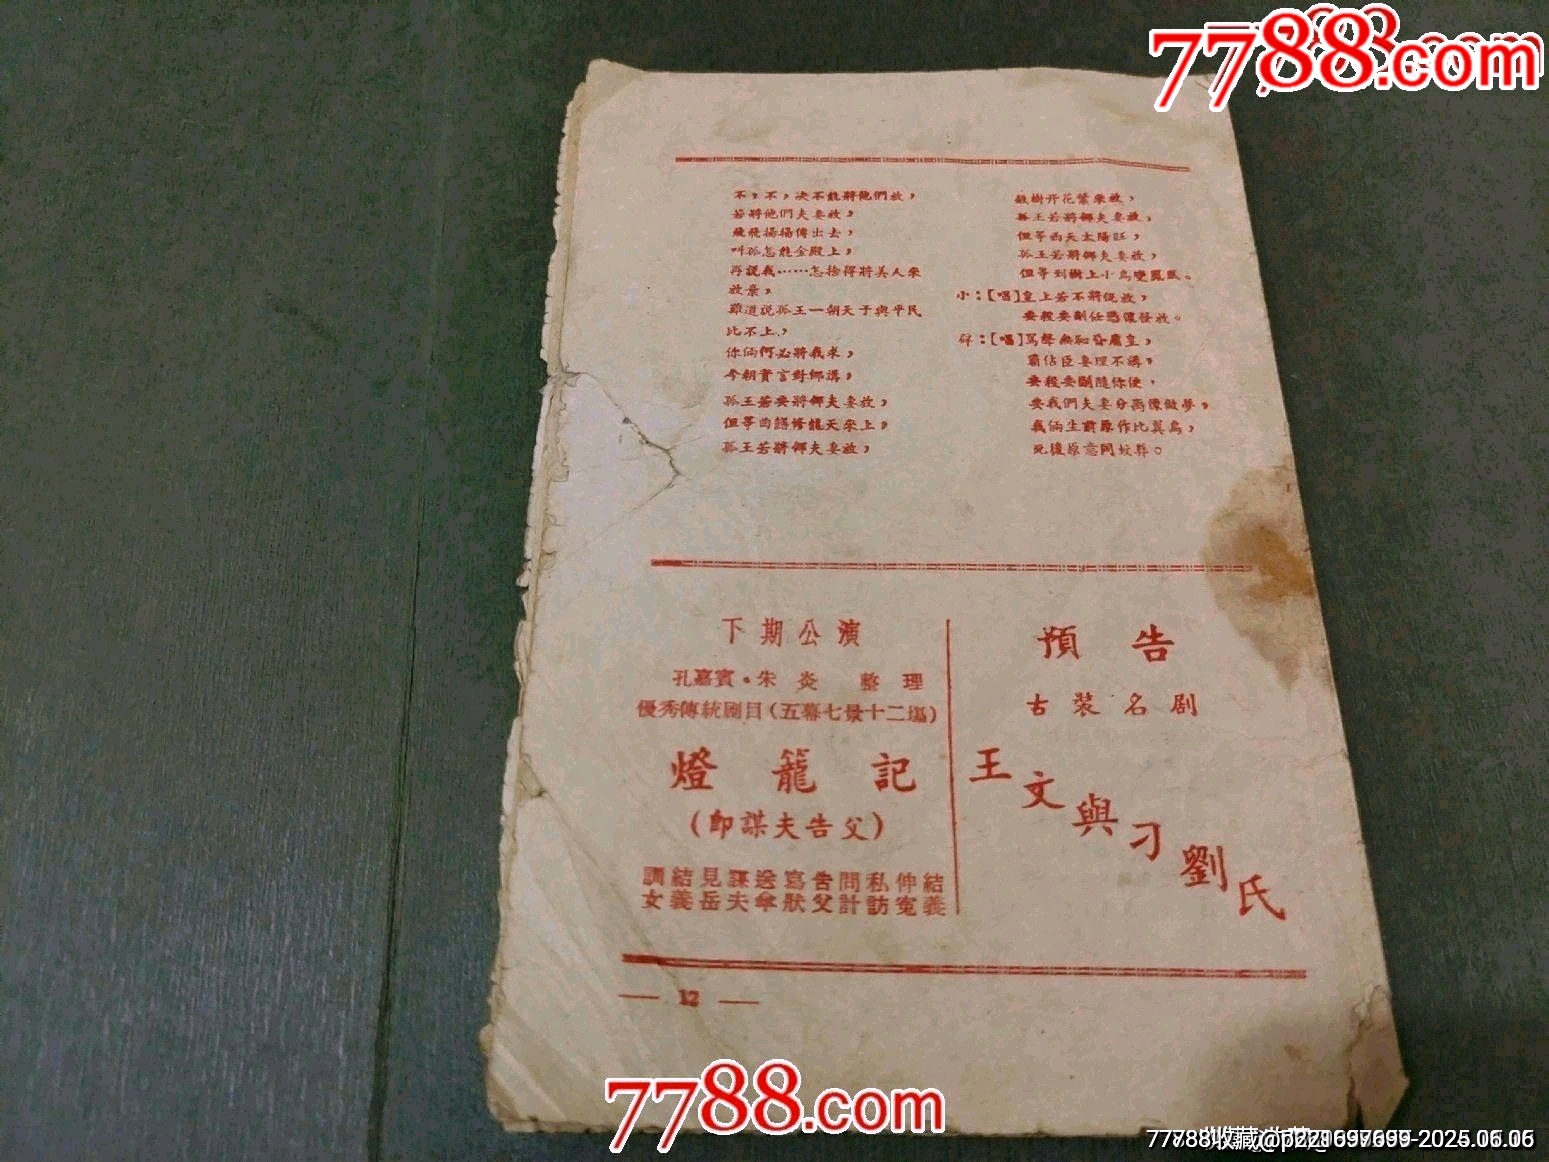 7788.com
不，不，决不能將他們放，
若將他們夫妻放，
飛飛揚揚傳出去，
叫孤怎能金殿上，
再說我……怎捨得將美人來
放棄，
難道說孤王一朝天子與平民
比不上，
你倆何必將我求，
今朝實言對鄉講，
孤王若要將鄉夫妻放，
但等曲蟮修龍天來上，
孤王若將鄉夫妻放，
鉄樹开花鶯來放，
孤王若將鄉夫妻放，
但等西天太陽旺，
孤王若將鄉夫妻放，
但等到樹上小鳥變鳳凰。
小：[唱]皇上若不將俺放，
要殺要剮任憑儂發放。
薛：[唱]罵聲無恥昏庸皇，
霸佔臣妻理不講，
要殺要剮隨你便，
要我們夫妻分离像做夢，
我倆生前原作比翼鳥，
死後原意同坟葬。
下期公演
孔嘉賓·朱炎 整理
優秀傳統剧目（五幕七景十二場）
燈籠記
（即謀夫告父）
調女 結義 見岳 謀夫 送傘 寫狀 告父 問計 私訪 伸冤 結義
預告
古裝名剧
王文與刁劉氏
— 12 —
7788.com